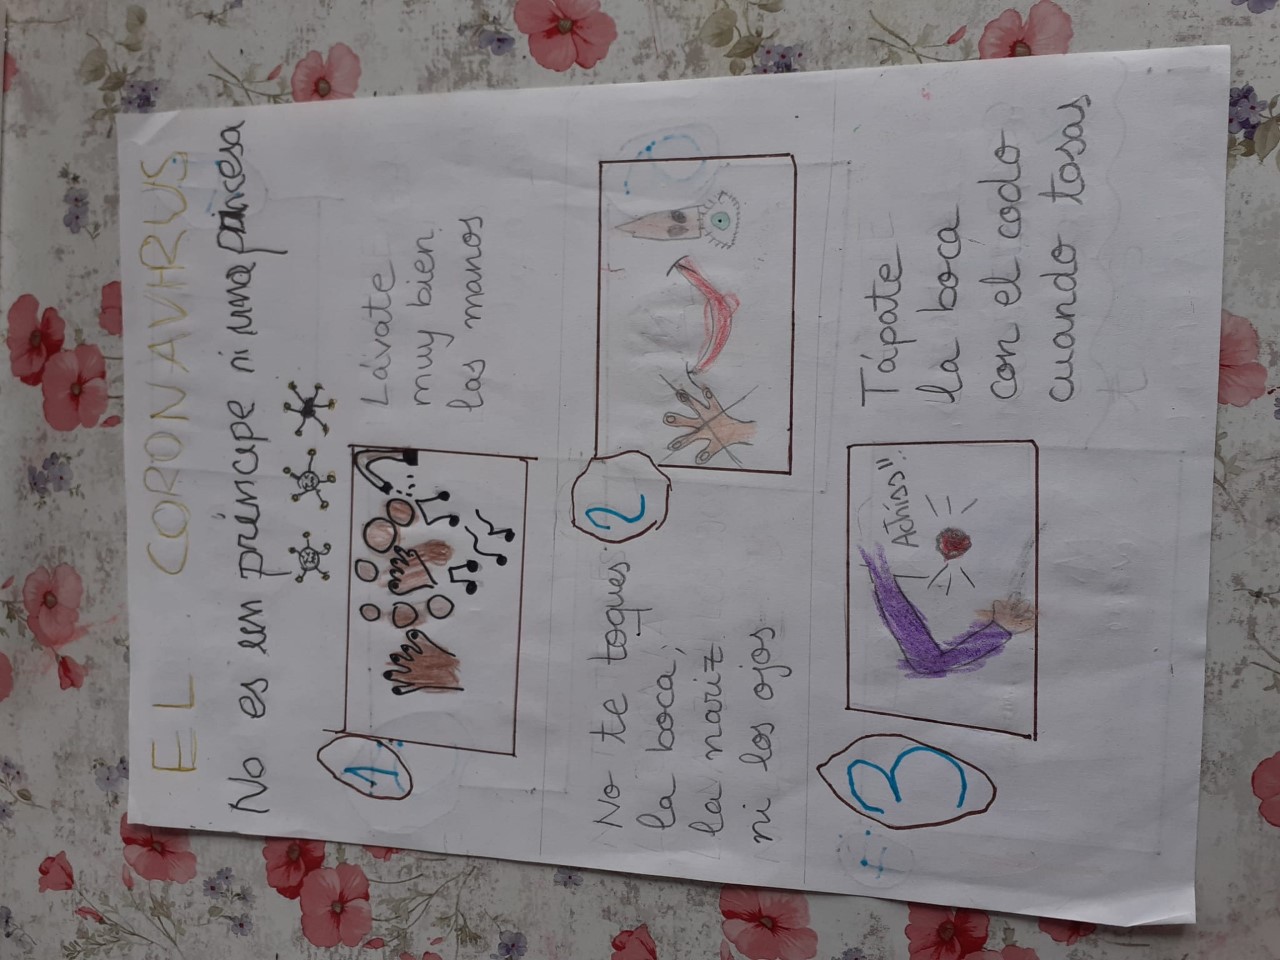 EL CORONAVIRUS
No es un príncipe ni una princesa
1
Lávate
muy bien
las manos
No te toques
la boca,
la nariz
ni los ojos
2
3
Achiss"
Tápate
la boca
con el codo
cuando tosas